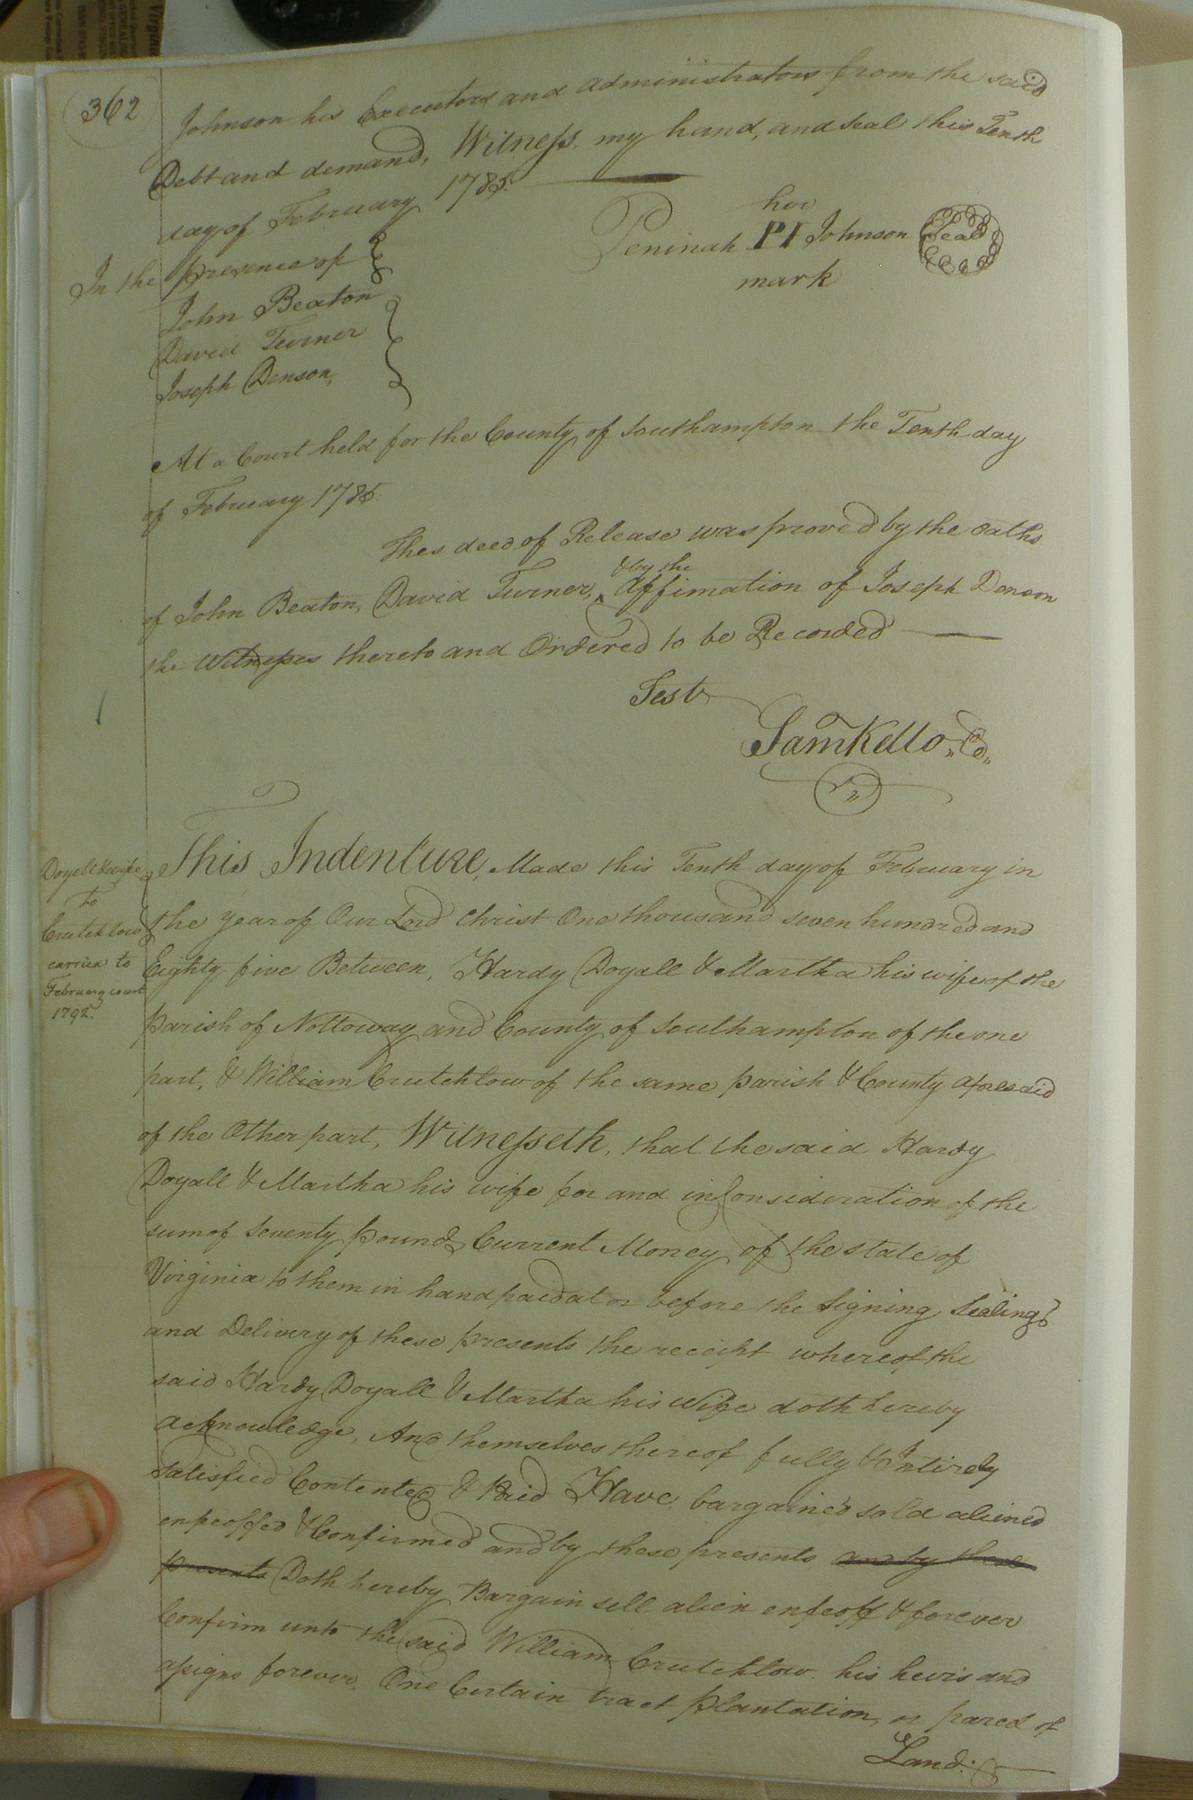 362
Johnson his Executors and administrators from the said
Debt and demand, Witness my hand, and seal this Tenth
day of February 1785.
her
Peninah PI Johnson Seal
mark
In the presence of
John Beaton
David Turner
Joseph Denson,
At a Court held for the County of Southampton the Tenth day
of February 1785
This deed of Release was proved by the oaths
& by the
of John Beaton, David Turner, ‸ Affimation of Joseph Denson
the Witnesses thereto and Ordered to be Recorded
Test
Saml Kello, Co,,
Doyell & wife
To
Crutchlow
carried to
February court
1792.
This Indenture, Made this Tenth day of February in
the year of Our Lord Christ One thousand seven hundred and
Eighty five Between, Hardy Doyall & Martha his wife of the
parish of Nottoway and County of Southampton of the one
part, & William Crutchlow of the same parish & County aforesaid
of the Other part, Witnesseth, that the said Hardy
Doyall & Martha his wife for and in Consideration of the
sum of Seventy pounds Current Money of the state of
Virginia to them in hand paid at or before the Signing Sealing
and Delivery of these presents the receipt whereof the
said Hardy Doyall & Martha his Wife doth hereby
acknowledge, And themselves thereof fully & Intirely
satisfied Contented & Paid Have bargained sold aliened
enfeoffed & Confirmed and by these presents and by these
presents Doth hereby Bargain sell alien enfeoff & forever
Confirm unto the said William Crutchlow his heirs and
assigns forever, One Certain tract plantation or parcel of
Land.